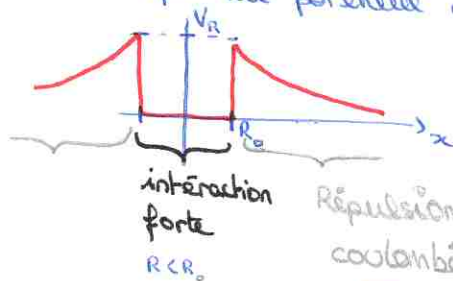 potentiel
V_R
R_o
x
intéraction
forte
R < R_o
Répulsion
coulombi